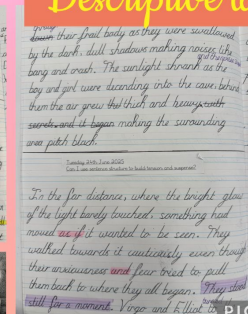 Descriptive w
down their frail body as they were swallowed
by the dark, dull shadows making noises like
bang and crash. The sunlight shrank as the
boy and girl were decending into the cave. behind
them the air grew thick and heavy with
secrets and it began making the surounding
area pitch black.
Tuesday 24th June 2025
Can I use sentence structure to build tension and suspense?
In the far distance, where the bright glow
of the light barely touched, something had
moved as if it wanted to be seen. They
walked towards it cautiously even though
their anxiousness and fear tried to pull
them back to where they all began. They stood
still for a moment. Virgo and Elliot to
PIC